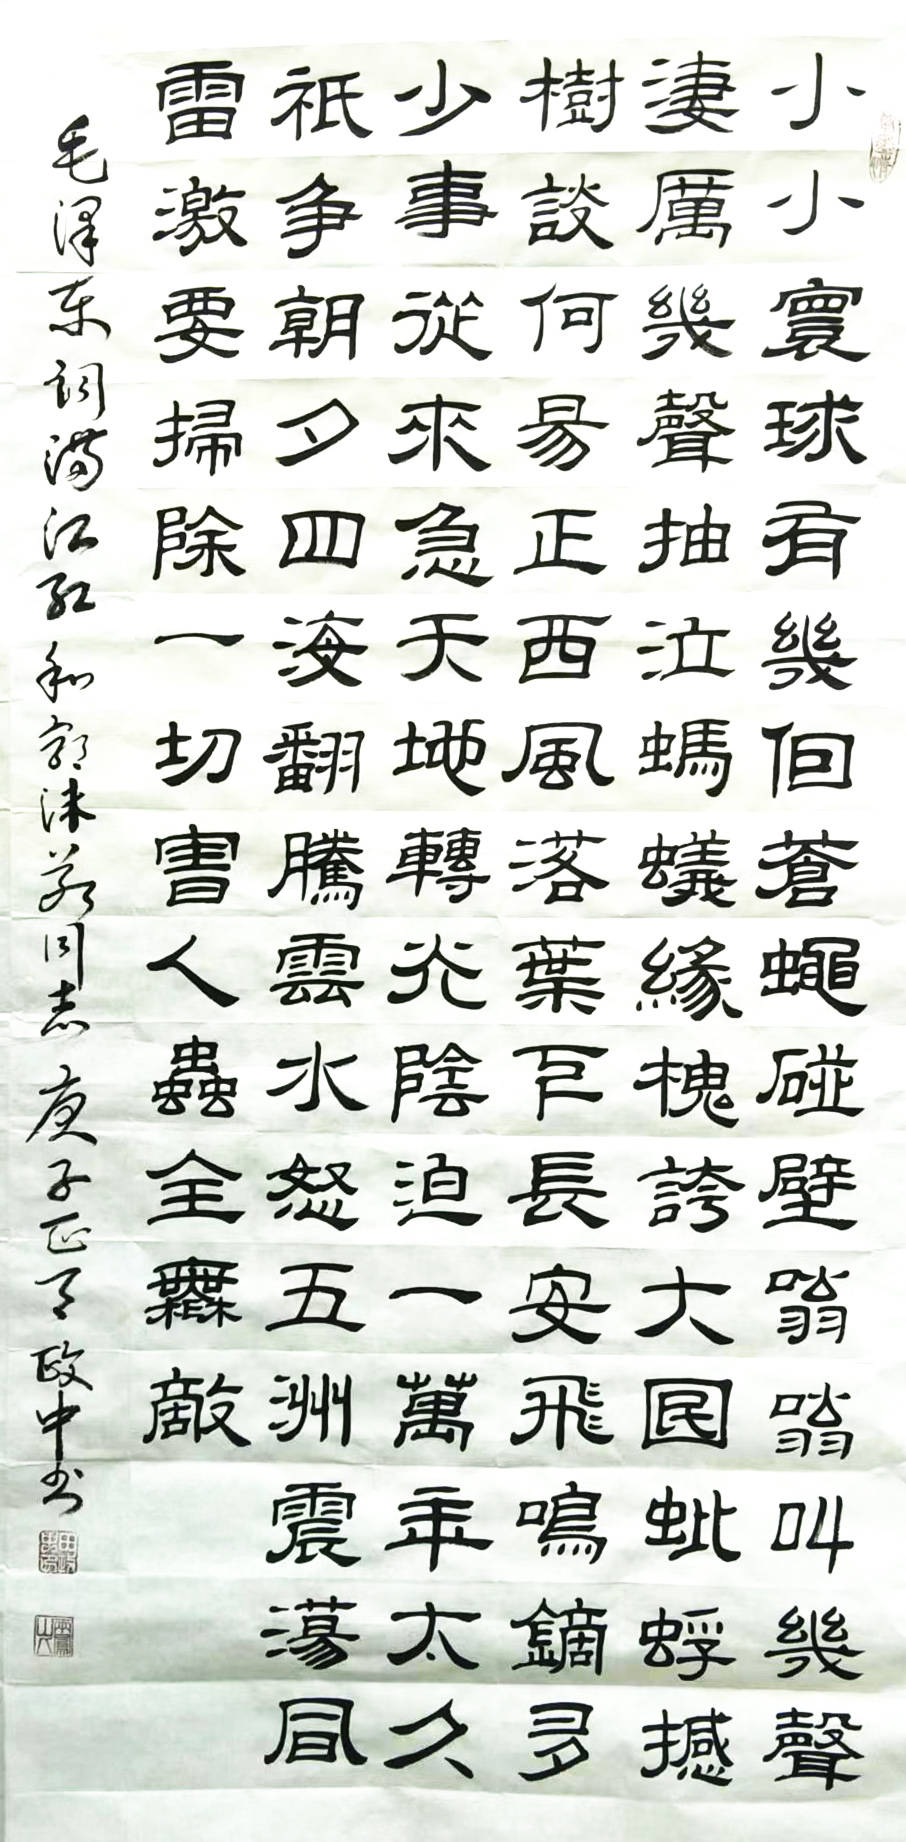 小小寰球有幾個蒼蠅碰壁嗡嗡叫幾聲
淒厲幾聲抽泣螞蟻緣槐誇大囻蚍蜉撼
樹談何易正西風落葉下長安飛鳴鏑多
少事從來急天地轉光陰迫一萬年太久
祇争朝夕四海翻騰雲水怒五洲震蕩凬
雷激要掃除一切害人蟲全無敵
毛泽东词满江红和郭沫若同志 庚子正月政中书